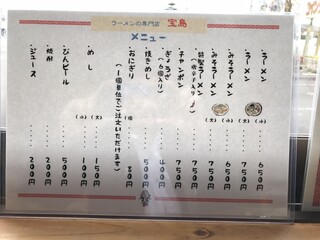 ラーメンの専門店 宝島
メニュー
・ラーメン (小) ‥‥ 650円
・ラーメン (大) ‥‥ 750円
・みそラーメン (小) ‥‥ 650円
・みそラーメン (大) ‥‥ 750円
・特製ラーメン ‥‥ 750円
・チャンポン ‥‥ 750円
・ぎょうざ (6個入り) ‥‥ 400円
・焼きめし ‥‥ 500円
・おにぎり 1個 ‥‥ 80円
(1個単位でご注文いただけます)
・めし (大) ‥‥ 150円
(小) ‥‥ 100円
・びんビール ‥‥ 500円
・焼酎 ‥‥ 200円
・ジュース ‥‥ 200円